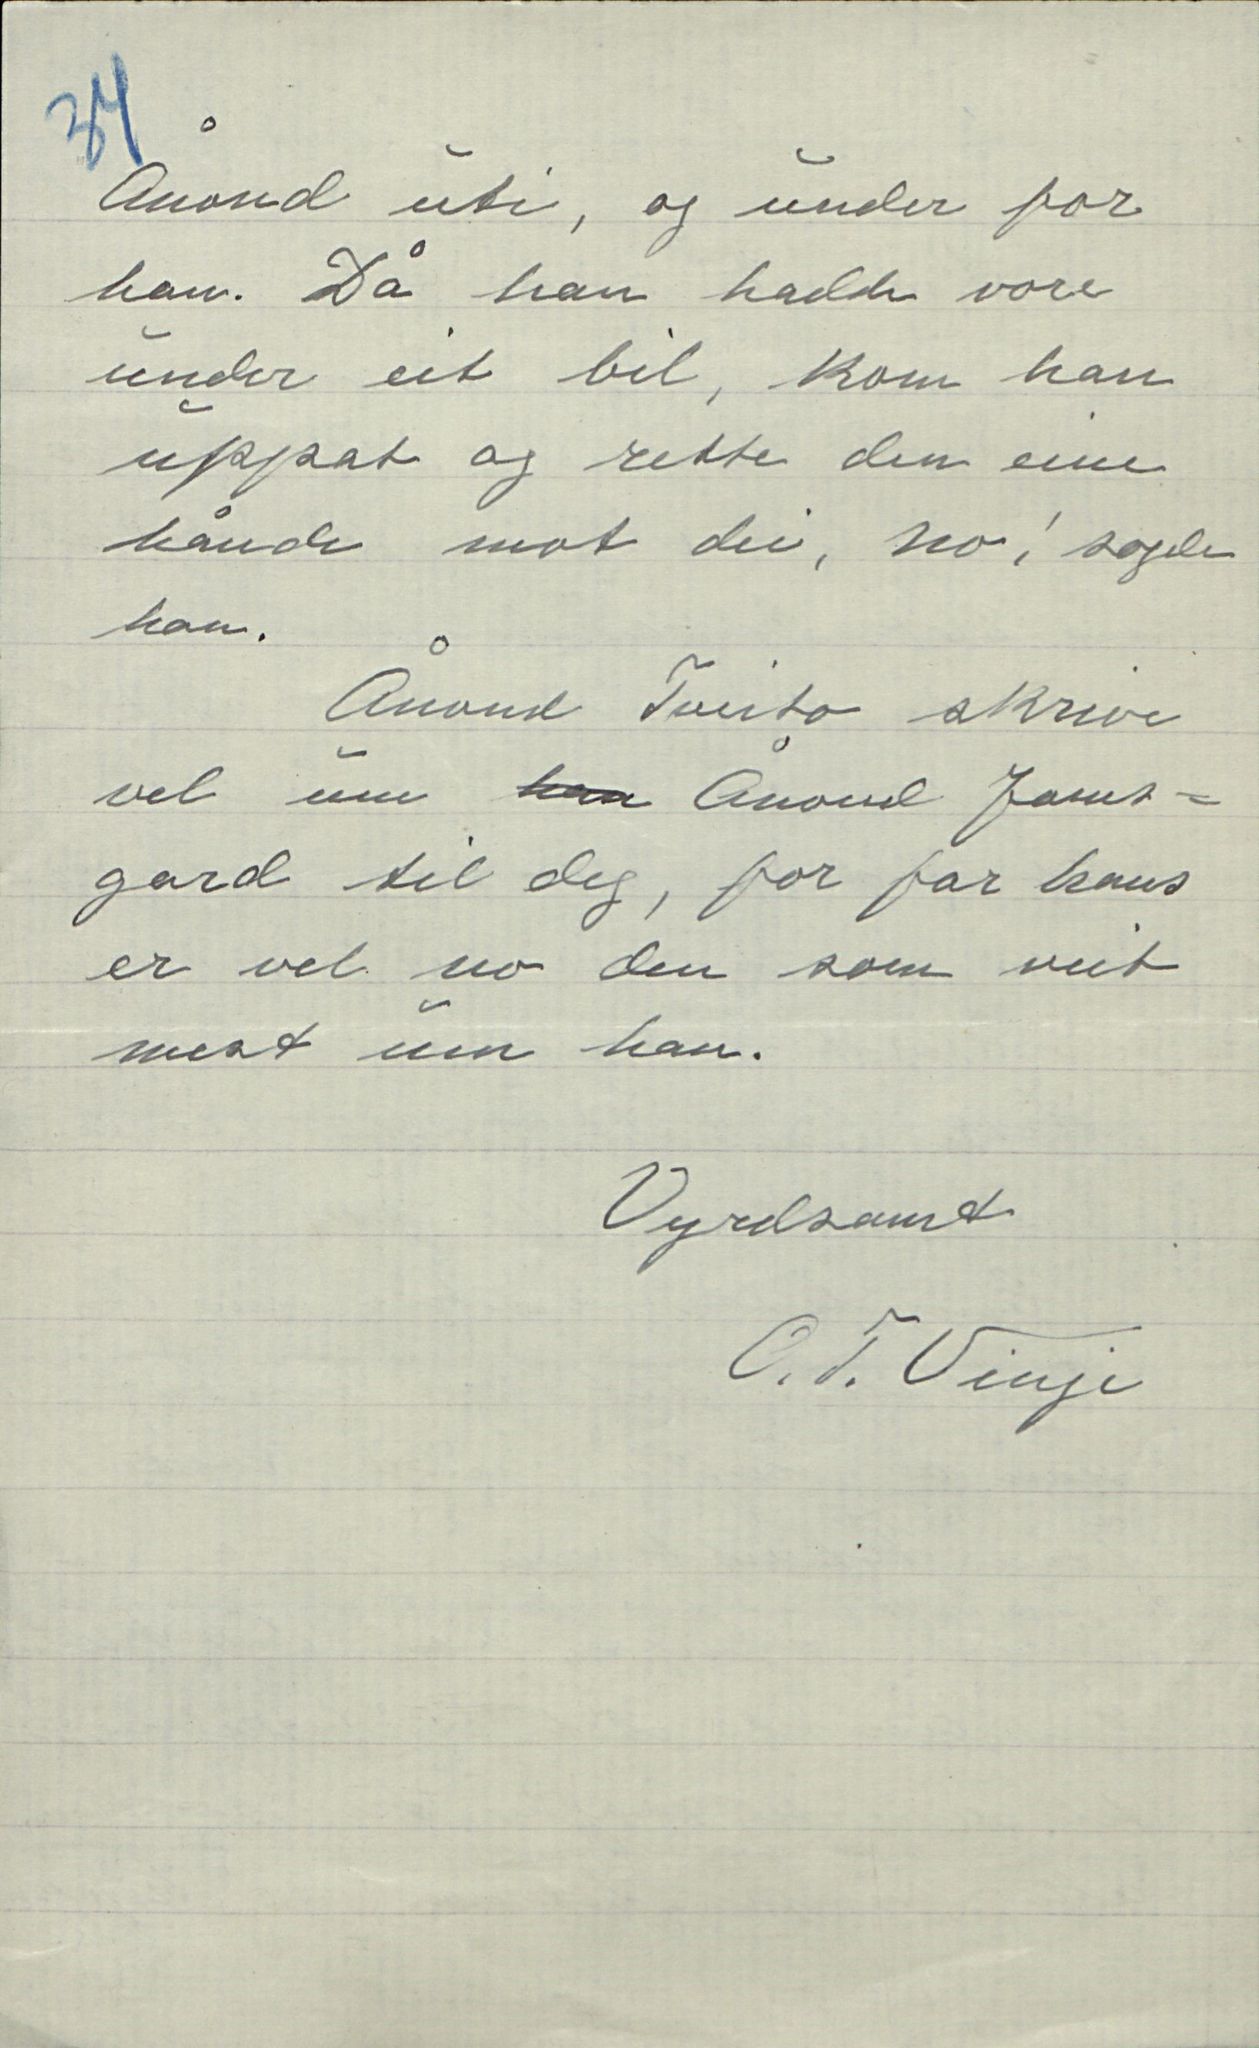 34
Ånond uti, og under for
han. Då han hadde vore
under eit bil, kom han
uppat og rette den eine
hånde mot dei, no! sogde
han.
Ånond Tveito skrive
vel um han Ånond Jams=
gard til deg, for far hans
er vel no den som veit
mest um han.
Vyrdsamt
O. T. Vinje